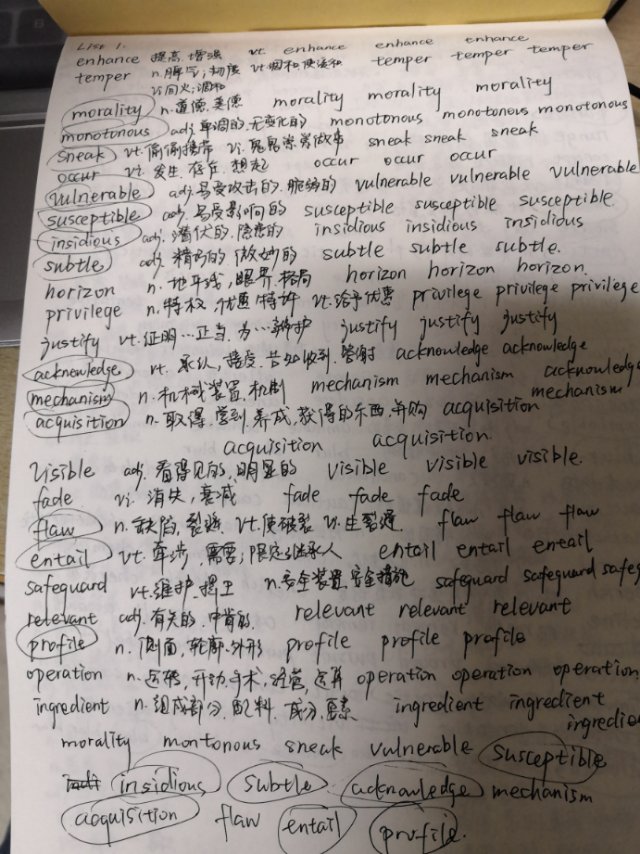 List 1.
enhance 提高,增强 vt. enhance enhance enhance
temper n.脾气;韧度 vt.调和,使缓和 temper temper temper
vi.回火;调和
morality n.道德,美德 morality morality morality
monotonous adj.单调的,无变化的 monotonous monotonous monotonous
sneak vt.偷偷携带 vi.鬼鬼祟祟做事 sneak sneak sneak
occur vi.发生,存在,想起 occur occur occur
vulnerable adj.易受攻击的,脆弱的 vulnerable vulnerable vulnerable
susceptible adj.易受影响的 susceptible susceptible susceptible
insidious adj.潜伏的,隐患的 insidious insidious insidious
subtle adj.精巧的,微妙的 subtle subtle subtle.
horizon n.地平线,眼界,格局 horizon horizon horizon.
privilege n.特权,优惠,特许 vt.给予优惠 privilege privilege privilege
justify vt.证明…正当,为…辩护 justify justify justify
acknowledge vt.承认,接受,告知收到,答谢 acknowledge acknowledge acknowledge
mechanism n.机械装置,机制 mechanism mechanism mechanism
acquisition n.取得,学到,养成,获得的东西,并购 acquisition
acquisition acquisition
visible adj.看得见的,明显的 visible visible visible.
fade vi.消失,衰减 fade fade fade
flaw n.缺陷,裂缝 vt.使破裂 vi.生裂缝 flaw flaw flaw
entail vt.牵涉,需要;限定继承人 entail entail entail
safeguard vt.维护,捍卫 n.安全装置,安全措施 safeguard safeguard safeg
relevant adj.有关的,中肯的 relevant relevant relevant
profile n.侧面,轮廓,外形 profile profile profile
operation n.运转,开动,手术,经营,运算 operation operation operation
ingredient n.组成部分,配料,成分,要素 ingredient ingredient
ingredie
morality montonous sneak vulnerable susceptible
insidious subtle acknowledge mechanism
acquisition flaw entail profile.